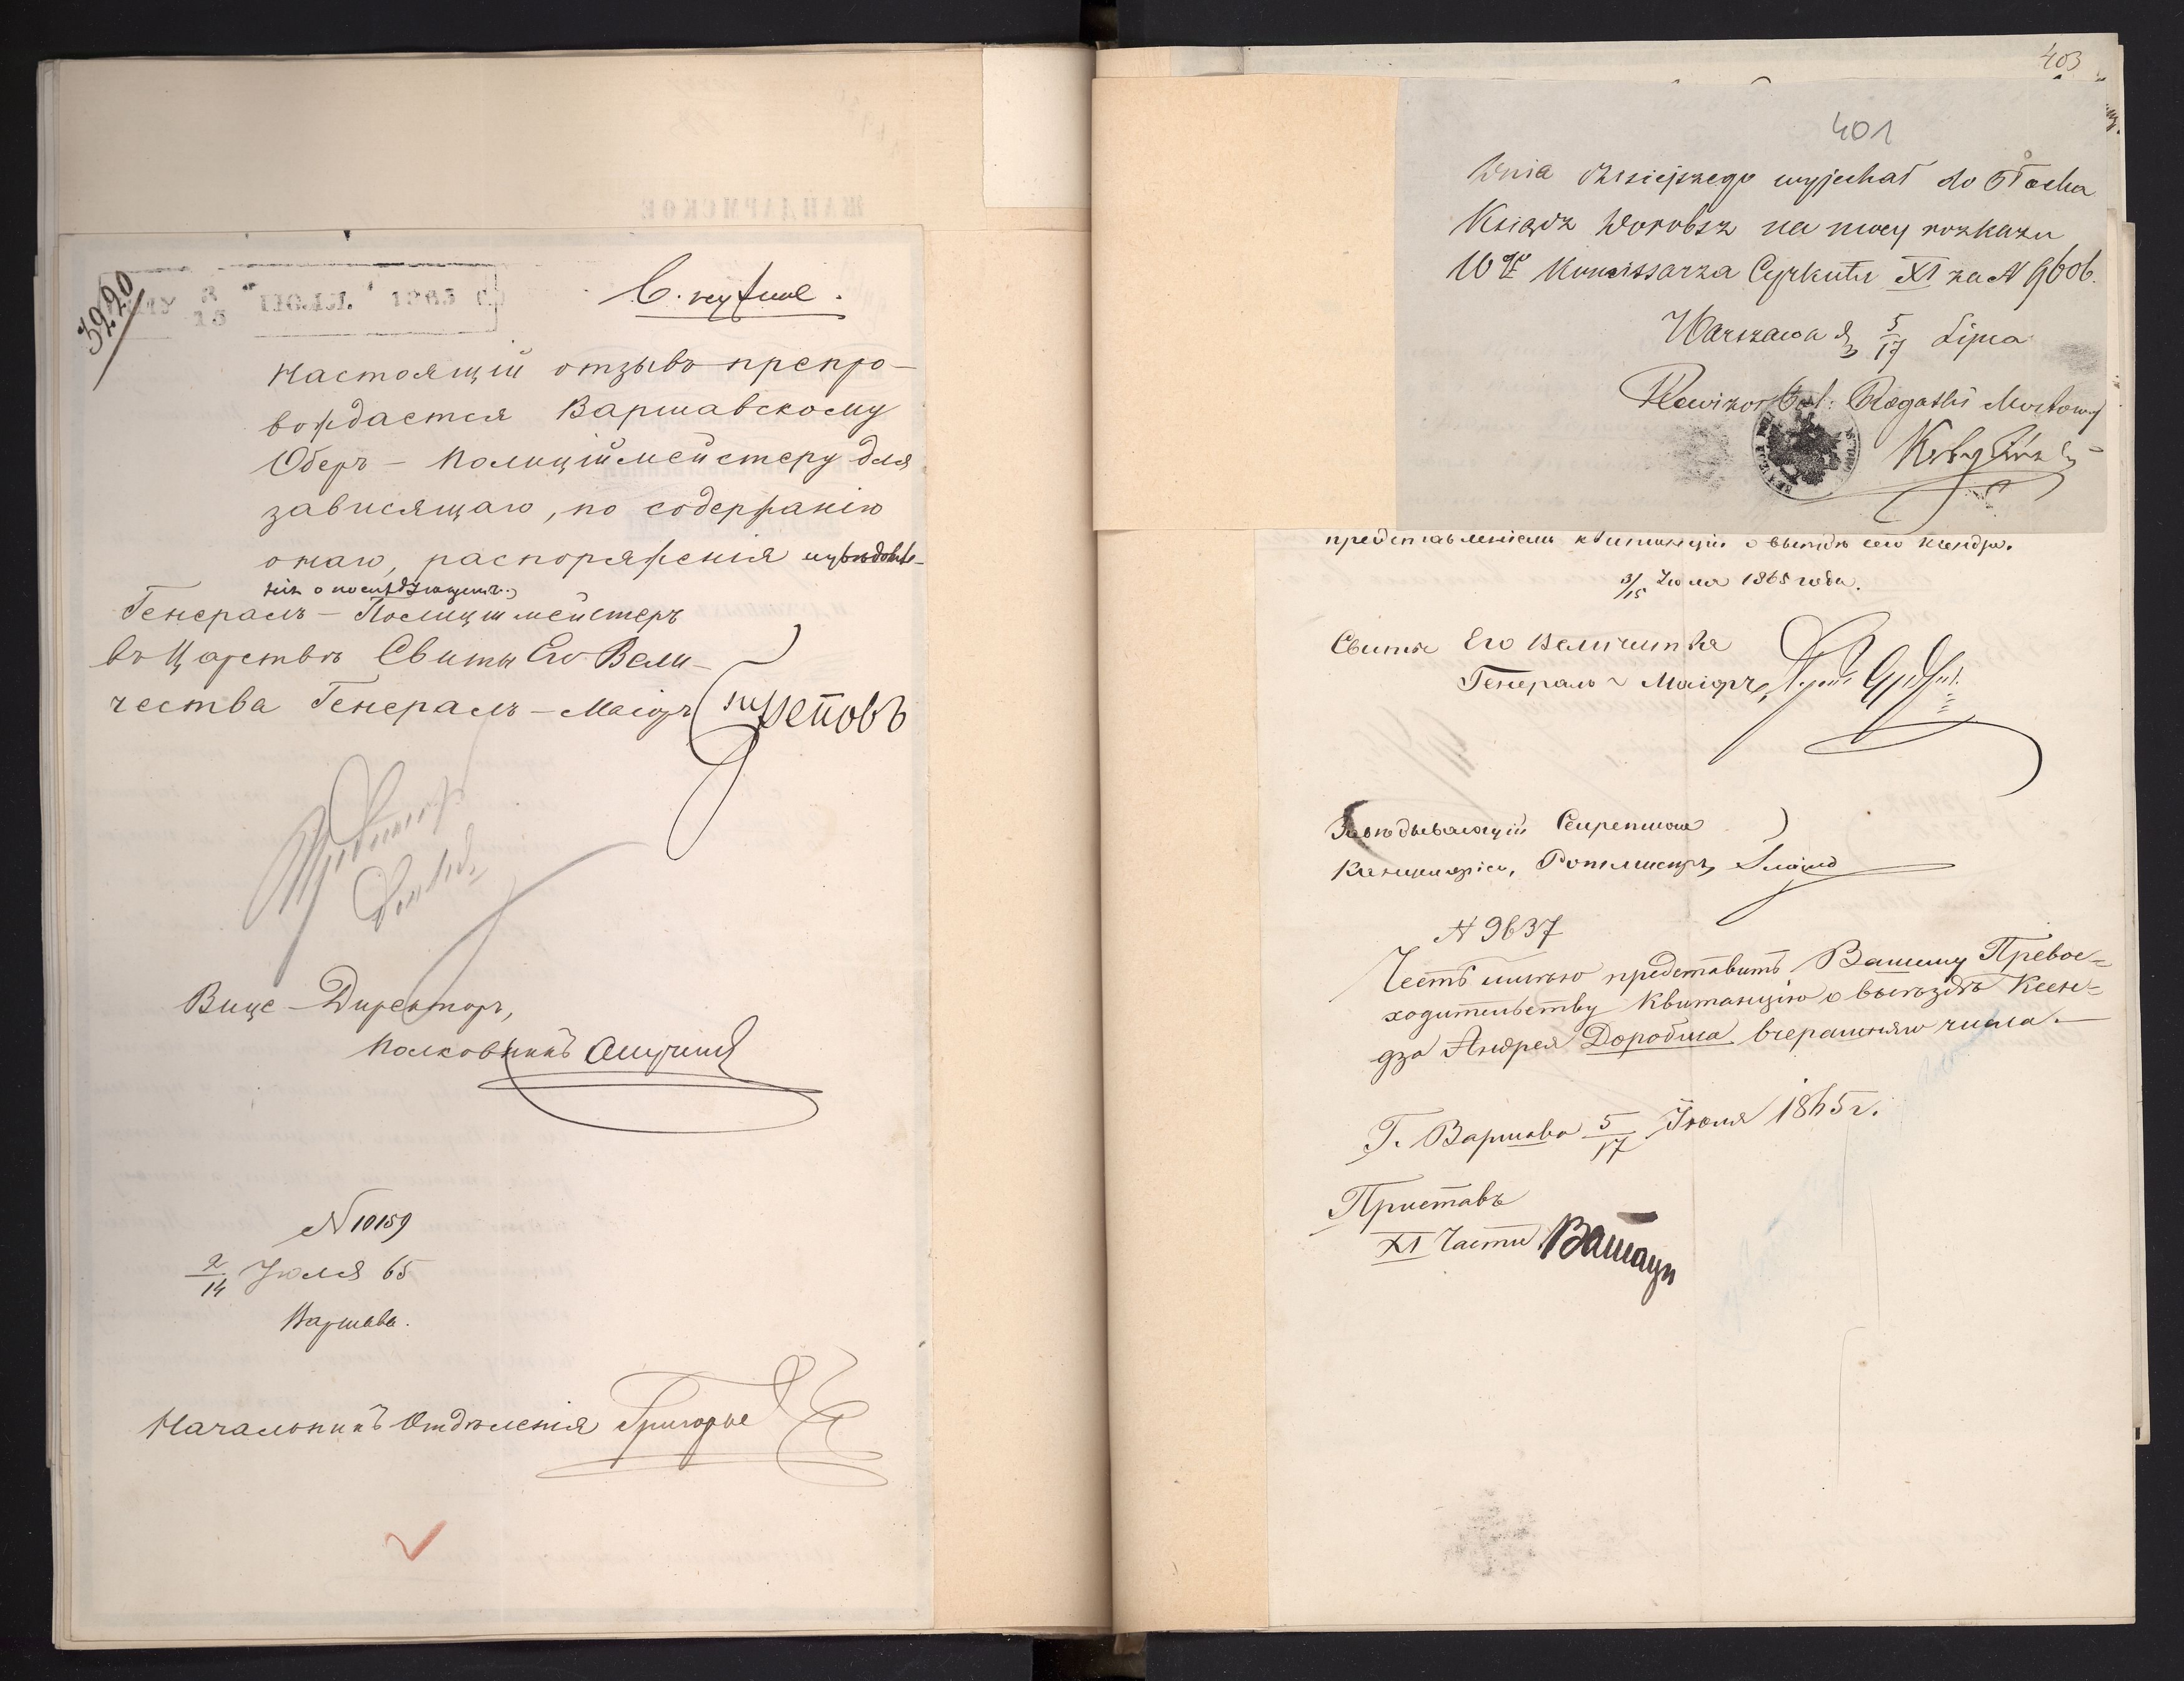 3220
3/15 ІЮЛЯ. 1865
Настоящій отзывъ препро-
вождается Варшавскому
Оберъ-Полиціймейстеру для
зависящаго, по содержанію
онаго, распоряженія и увѣдомле-
нія о послѣдующемъ.
Генералъ-Полиціймейстеръ
въ Царствѣ Свиты Его Вели-
чества Генералъ-Маіоръ Треповъ
Вице-Директоръ,
Полковникъ
N 10159
2/14 Іюля 65
Варшава.
Начальникъ Отдѣленія
403
401
Dnia dzisiejszego wyjechał do Płocka
Ksiądz Dorobsz na mocy rozkazu
Wgo Kommissarza Cyrkułu XI za N 9606.
Warszawa d 5/17 Lipca
Rewizor Rogatki
представленіемъ квитанціи о выѣздѣ сего ксендза.
3/15 Іюля 1865 года.
Свиты Его Величества
Генералъ-Маіоръ,
Завѣдывающій Секретною
Канцеляріею, Ротмистръ
N 9637
Честь имѣю представить Вашему Превос=
ходительству квитанцію о выѣздѣ Ксен=
дза Андрея Доробша вчерашняго числа.
Г. Варшава 5/17 Іюля 1865 г.
Приставъ
XI Части